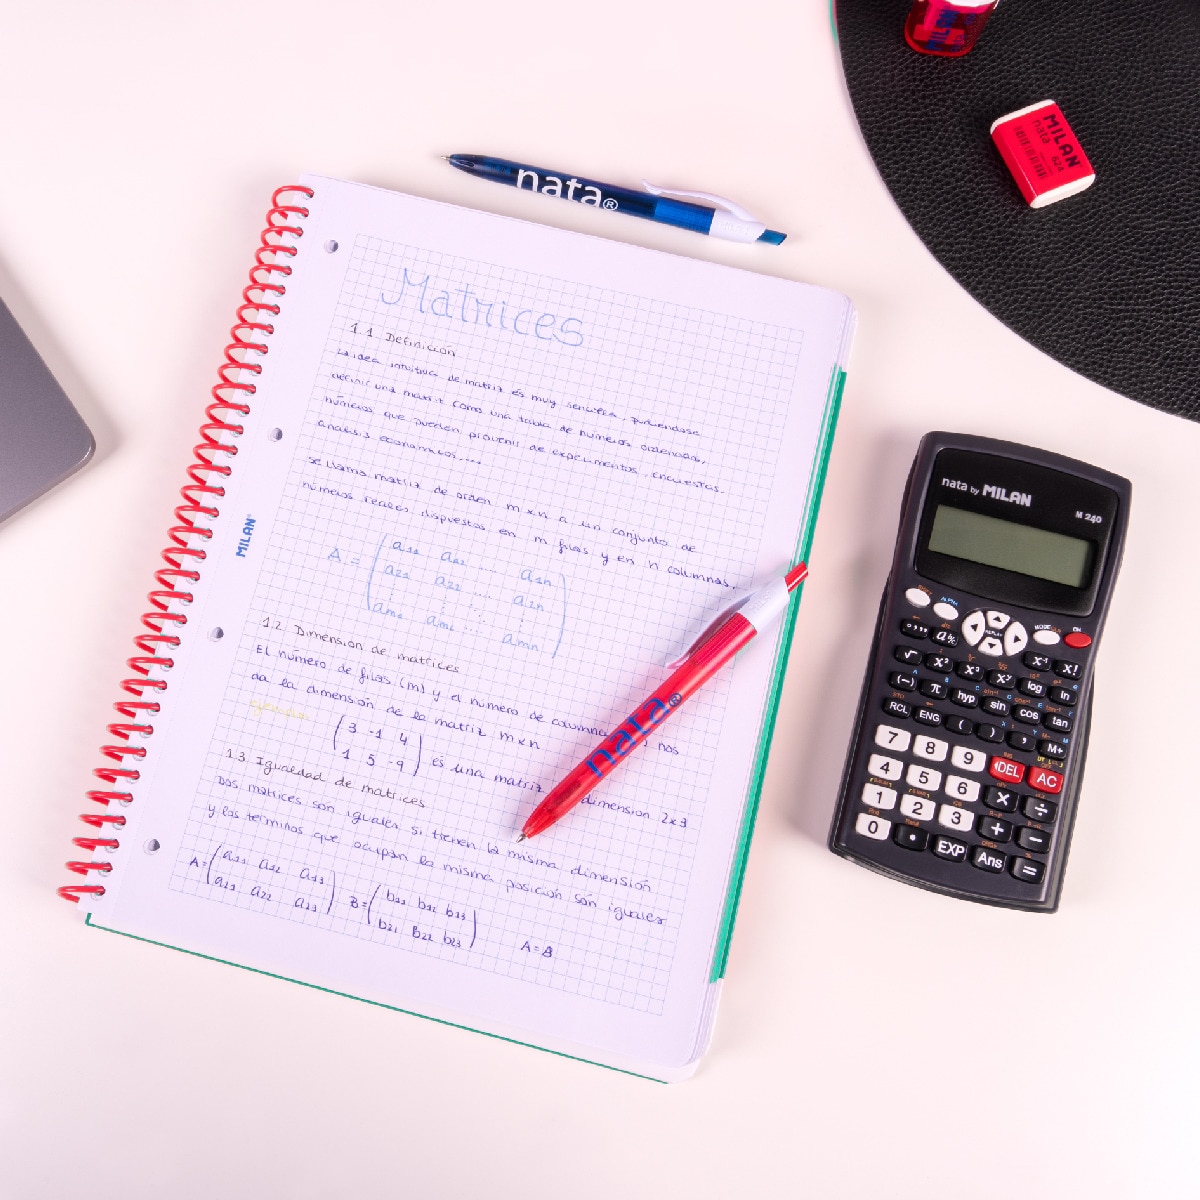 MILAN
MILAN
nata
624
nata®
Matrices
1.1 Definición
La idea intuitiva de matriz es muy sencilla, pudiendose
definir una matriz como una tabla de números ordenados,
números que pueden provenir de experimentos, encuestas,
analisis económicos....
Se llama matriz de orden m×n a un conjunto de
números reales dispuestos en m filas y en n columnas.
A = ( a11 a12 .... a1n
a21 a22 .... a2n
⋮ ⋮ ⋱ ⋮
am1 am2 .... amn )
MILAN®
1.2 Dimension de matrices
El número de filas (m) y el numero de columna nos
da la dimensión de la matriz m×n
ejemplo:
( 3 -1 4
1 5 -9 ) es una matriz dimension 2x3
1.3. Igualdad de matrices
Dos matrices son iguales si tienen la misma dimensión
y los terminos que ocupan la misma posición son iguales
A=( a11 a12 a13 B=( b11 b12 b13
a21 a22 a23 ) b21 B22 b23 ) A=B
nata®
nata by MILAN
M 240
ALPHA
MODE
ON
REPLAY
x⁻¹ x!
√ x² x³ log ln
(−) π hyp sin cos tan
RCL ENG ( ) , M+
7 8 9 DEL AC
4 5 6 × ÷
1 2 3 + −
0 • EXP Ans =